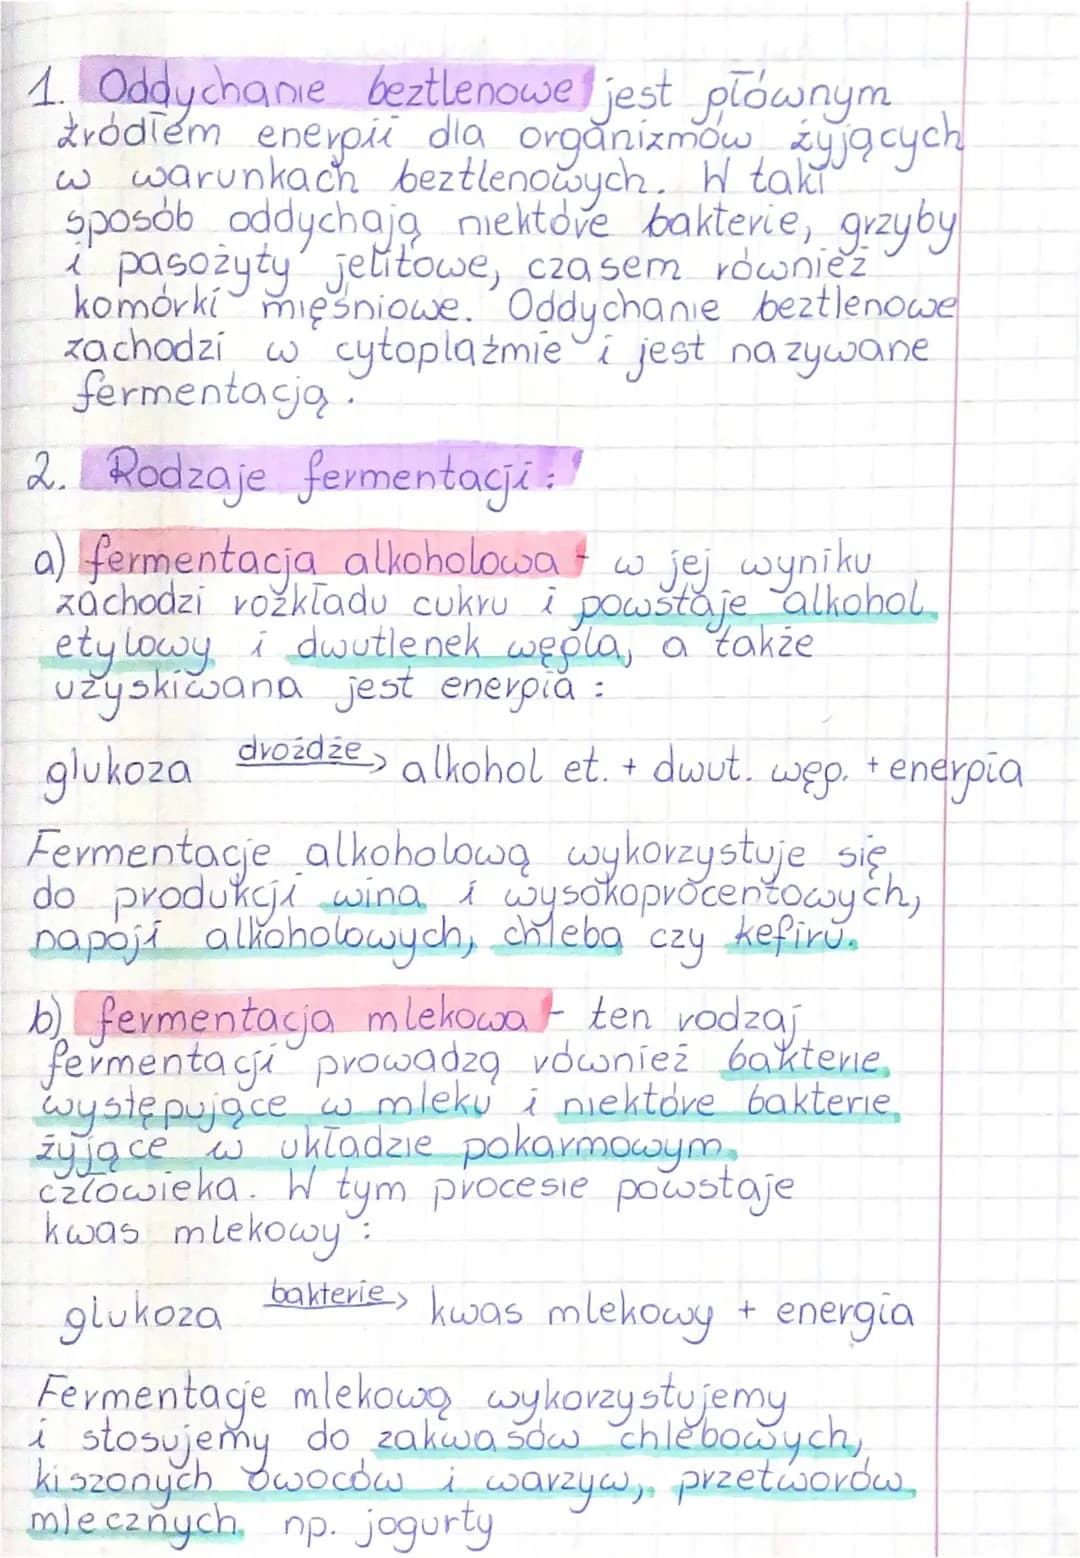 1. Oddychanie beztlenowe jest głównym
źródłem energii dla organizmów żyjących
w warunkach beztlenowych. W taki
sposób oddychają niektóre bakterie, grzyby
i pasożyty jelitowe, czasem również
komórki mięśniowe. Oddychanie beztlenowe
zachodzi w cytoplaźmie i jest nazywane
fermentacją.
2. Rodzaje fermentacji:
a) fermentacja alkoholowa - w jej wyniku
zachodzi rozkładu cukru i powstaje alkohol
etylowy i dwutlenek węgla, a także
uzyskiwana jest energia:
glukoza drożdże → alkohol et. + dwut. węg. + energia
Fermentacje alkoholową wykorzystuje się
do produkcji wina i wysokoprocentowych,
napoji alkoholowych, chleba czy kefiru.
b) fermentacja mlekowa - ten rodzaj
fermentacji prowadzą również bakterie
występujące w mleku i niektóre bakterie
żyjące w układzie pokarmowym
człowieka. W tym procesie powstaje
kwas mlekowy:
glukoza bakterie → kwas mlekowy + energia
Fermentacje mlekową wykorzystujemy
i stosujemy do zakwasów chlebowych,
kiszonych owoców i warzyw, przetworów
mlecznych np. jogurty